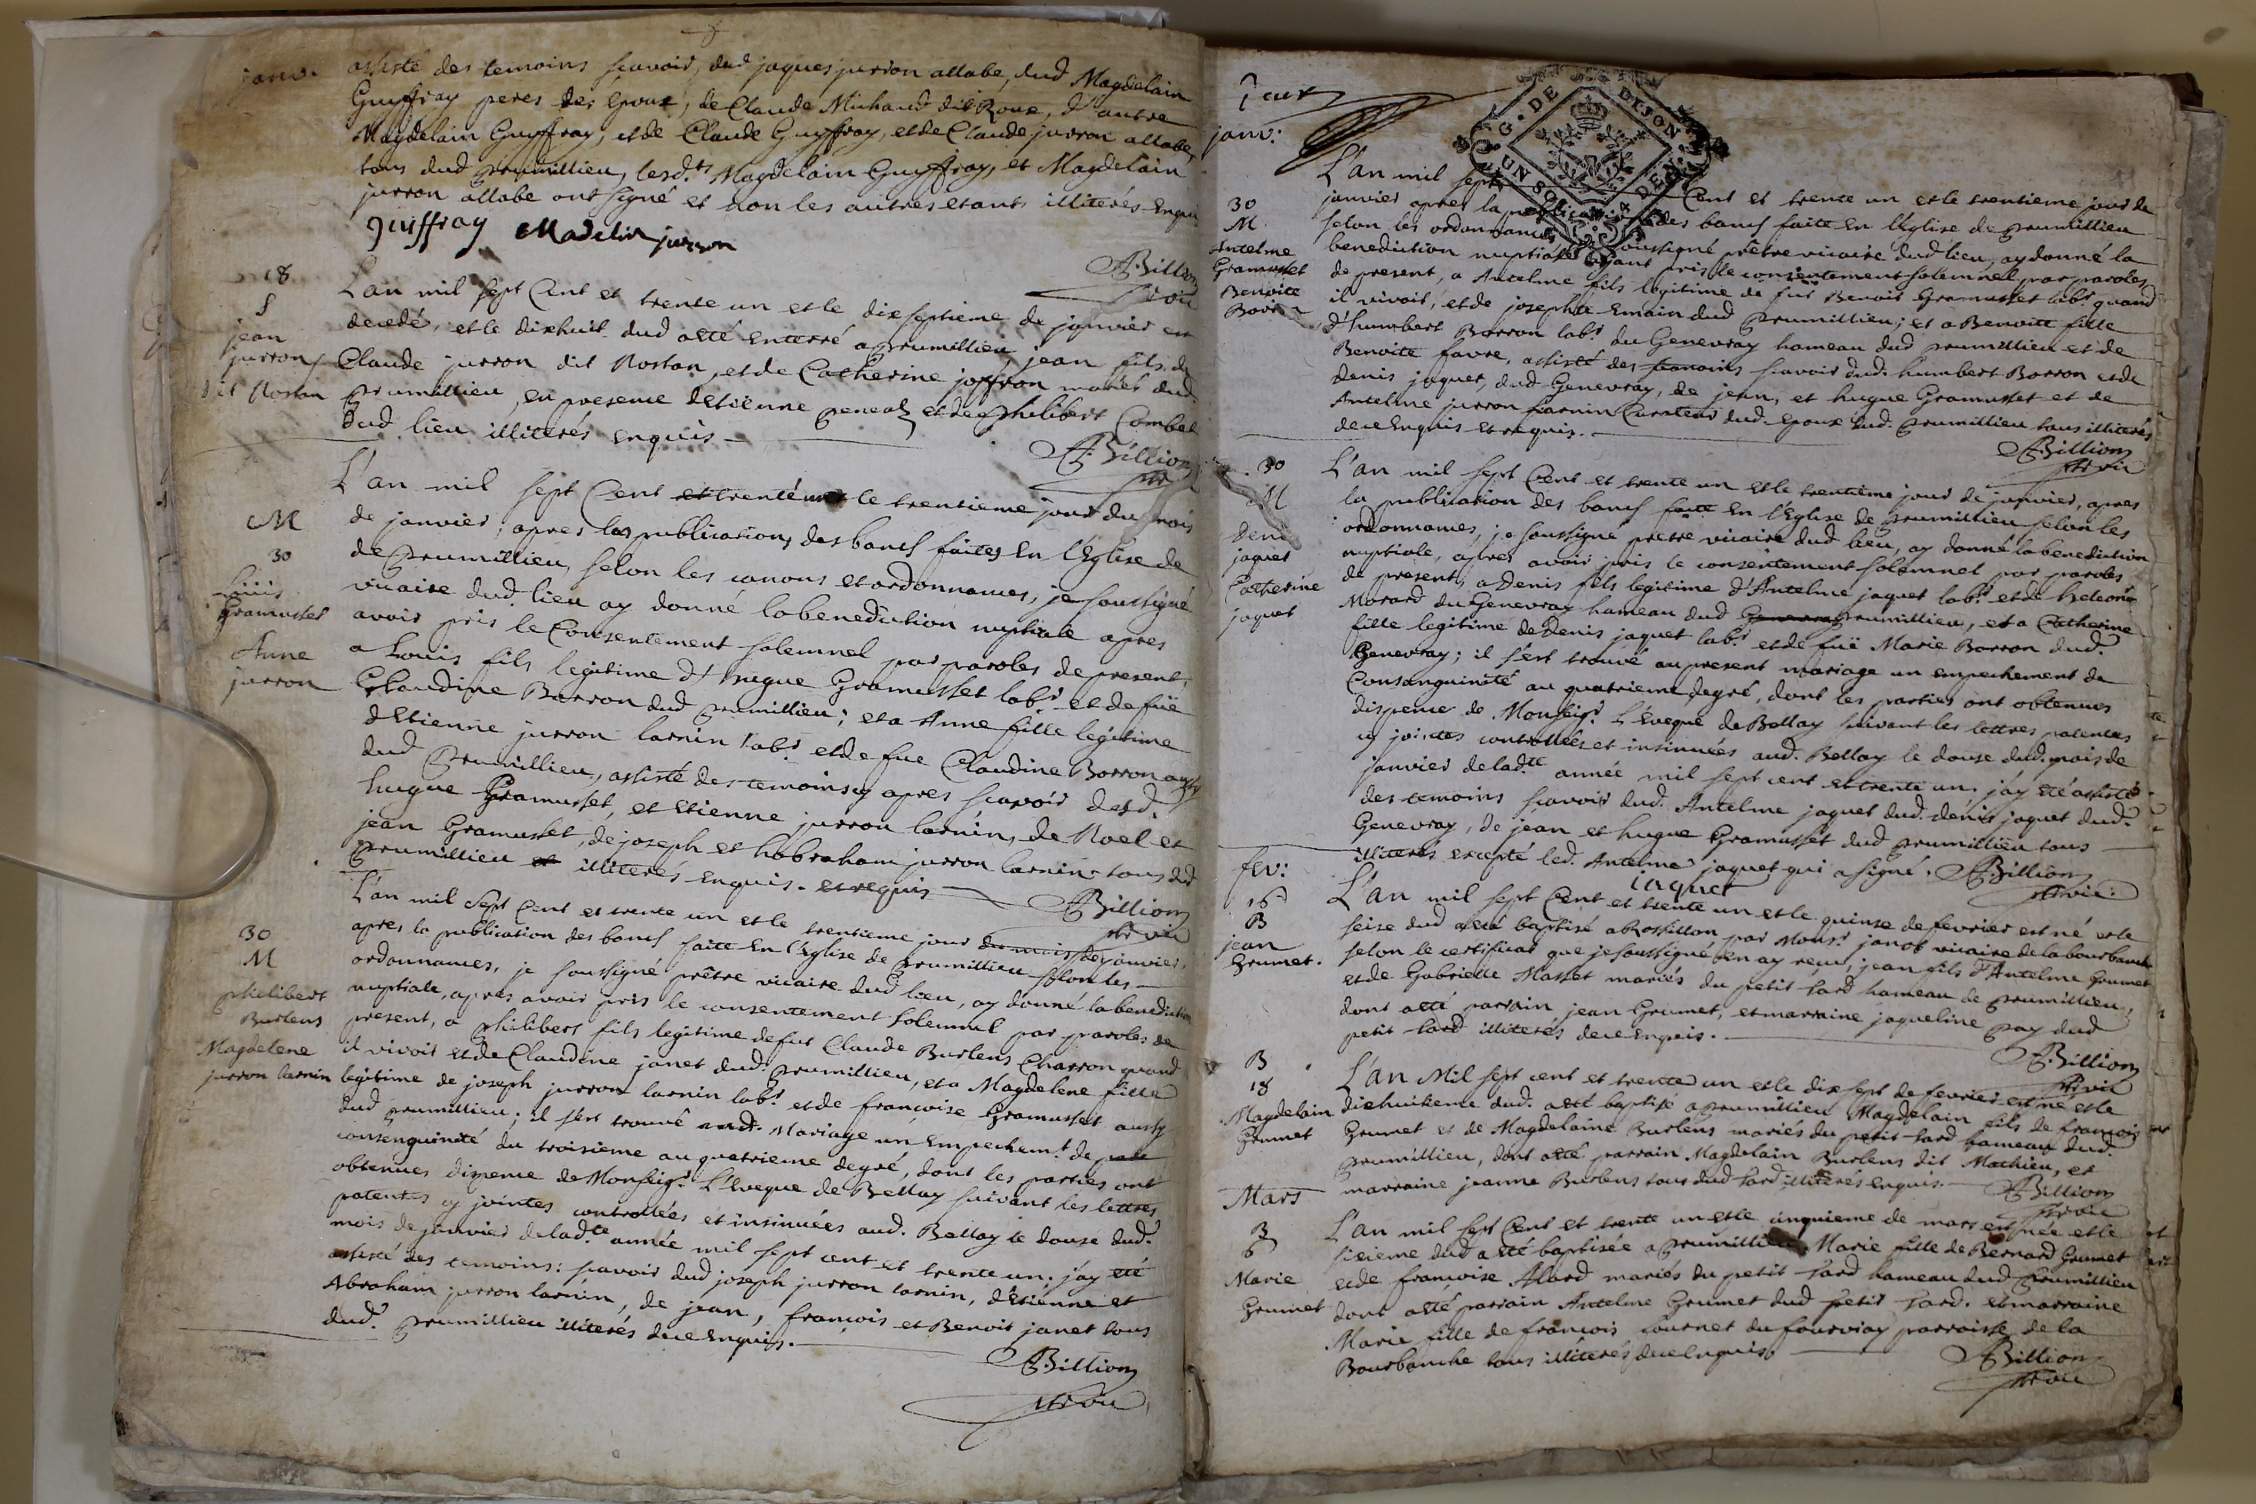 janv.
assisté des temoins scavoir, dud jaques jurron allabe, dud Magdelain
Guyffray peres des Epoux, de Claude Michaud dit Roux, d'autre
Magdelain Guyffray, et de Claude Guyffray, et de Claude jurron allabe,
tous dud prumillieu, lesd.ts Magdelain Guyffray, et Magdelain
jurron allabe ont signé et non les autres etants illiterés Enquis
Juiffray Madelin jurron
Billion
ptr vic
18
S
jean
jurron
dit Rostan
L'an mil sept Cent et trente un et le dix septieme de janvier est
decedé, et le dixhuit dud a eté enterré a prumillieu, jean fils de
Claude jurron dit Rostan, et de Catherine joffron mariés dud
prumillieu, en presence d'Etienne et de philibert Combet
dud lieu illiterés enquis
Billion
ptr
M
30
Louis
Gramusset
Anne
jurron
L'an mil sept Cent et trente un et le trentieme jour du mois
de janvier, apres les publications des bancs faites En l'Eglise de
de prumillieu, selon les canons et ordonnances, je soussigné
vicaire dud lieu ay donné la benediction nuptiale apres
avoir pris le Consentement solemnel par paroles de present,
a Louis fils legitime d'hugue Gramusset lab.r et de füe
Claudine Borron dud prumillieu; et a Anne fille legitime
d'Etienne jurron larnin lab.r et de fue Claudine Borron aussy
dud prumillieu, assisté des temoins cy apres scavoir desd.
hugue Gramusset, et Etienne jurron larnin, de Noel et
jean Gramusset, de joseph et habraham jurron larnin tous dud
prumillieu et illiterés enquis et requis
Billion
ptr vic
30
M
philibert
Burlens
Magdelene
jurron larnin
L'an mil sept Cent et trente un et le trentieme jour du mois de janvier,
apres la publication des bancs faite En l'Eglise de prumillieu selon les
ordonnances, je soussigné prêtre vicaire dud lieu, ay donné la benediction
nuptiale, apres avoir pris le consentement solemnel par paroles de
present, a philibert fils legitime de fut Claude Burlens Charron quand
il vivoit et de Claudine janet dud. prumillieu, et a Magdelene fille
legitime de joseph jurron larnin lab.r et de francoise Gramusset aussy
dud prumillieu; il s'est trouvé aud. Mariage un Empechem.t de
consenguinité du troisieme au quatrieme degré, dont les parties ont
obtenues dispence de Monseig.r L'Eveque de Bellay suivant les lettres
patentes cy jointes controllées et insinuées aud. Bellay le douze dud.
mois de janvier de lad.te année mil sept cent et trente un; j'ay eté
assisté des temoins: scavoir dud joseph jurron larnin, d'Etienne et
Abraham jurron larnin, de jean, francois et Benoit janet tous
dud. prumillieu illiterés de ce Enquis.
Billion
ptr vic
janv:
G. DE DIJON
UN SOL 4 DEN
30
M
Antelme
Gramusset
Benoite
Borron
L'an mil sept Cent et trente un et le trentieme jour de
janvier apres la publication des bancs faite En l'Eglise de prumillieu
selon les ordonnances je soussigné prêtre vicaire dud lieu, ay donné la
benediction nuptiale ayant pris le consentement solemnel par paroles
de present, a Antelme fils legitime de fut Benoit Gramusset lab.r quand
il vivoit, et de josephte Emain dud prumillieu; et a Benoite fille
d'humbert Borron lab.r du Genevray hameau dud prumillieu et de
Benoite favre, assisté des temoins scavoir dud. humbert Borron et de
denis jaquet, dud Genevray, de jean, et hugue Gramusset et de
Antelme jurron larnin Curateur dud. Epoux dud. prumillieu tous illiterés
de ce Enquis et requis.
Billion
ptr vic
30
M
Denis
jaquet
Catherine
jaquet
L'an mil sept Cent et trente un et le trentieme jour de janvier, apres
la publication des bancs faite En l'Eglise de prumillieu selon les
ordonnances, je soussigné prêtre vicaire dud lieu, ay donné la benediction
nuptiale, apres avoir pris le consentement solemnel par paroles
de present, a Denis fils legitime d'Antelme jaquet lab.r et de
Morard du Genevray hameau dud prumillieu, et a Catherine
fille legitime de Denis jaquet lab.r et de fuë Marie Borron dud.
Genevray; il s'est trouvé au present mariage un empechement de
Consanguinité au quatrieme degré, dont les parties ont obtenues
dispence de Monseig.r L'Eveque de Bellay suivant les lettres patentes
cy jointes controllées et insinuées aud. Bellay le douze dud. mois de
janvier de lad.te année mil sept cent et trente un, j'ay eté assisté
des temoins scavoir dud. Antelme jaquet dud. denis jaquet dud.
Genevray, de jean et hugue Gramusset dud prumillieu tous
illiterés excepté led. Antelme jaquet qui a signé. Billion
jaquet ptr vic:
fev:
16
B
jean
Grumet.
L'an mil sept Cent et trente un et le quinze de fevrier est né et le
seize dud a eté baptisé a Rossillon par Mons.r janot vicaire de la bourbanche
selon le certificat que je soussigné en ay reçu, jean fils d'Antelme Grumet
et de Gabrielle Masset mariés du petit tard hameau de prumillieu,
dont a eté parrain, jean Grumet, et marraine jaqueline pay dud
petit tard illiterés de ce Enquis.
Billion
ptr vic
B
18
Magdelain
Grumet
L'an Mil sept cent et trente un et le dix sept de fevrier est né et le
dixhuitieme dud. a eté baptisé a prumillieu Magdelain fils de francois
Grumet et de Magdelaine Burlens mariés du petit tard hameau dud.
prumillieu, dont a eté parrain Magdelain Burlens dit Mathieu, et
marraine jeanne Burlens tous dud tard illiterés enquis.
Billion
ptr vic
Mars
B
6
Marie
Grumet
L'an mil sept Cent et trente un et le cinquieme de mars est née et le
sixieme dud a eté baptisée a prumillieu Marie fille de Bernard Grumet
et de francoise Alard mariés du petit tard hameau dud prumillieu
dont a eté parrain Antelme Grumet dud petit tard. et marraine
Marie fille de francois du fourviay parroisse de la
Bourbanche tous illiterés de ce Enquis.
Billion
ptr vic